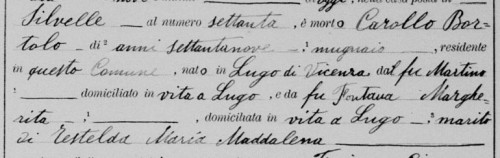 Silvelle al numero settanta, è morto Carollo Bor-
tolo - di anni settantanove -: mugnaio, residente
in questo Comune, nato in Lugo di Vicenza, dal fu Martino
: domiciliato in vita a Lugo, e da fu Fontana Marghe-
rita, -: domiciliata in vita a Lugo -: marito
di Testolda Maria Maddalena